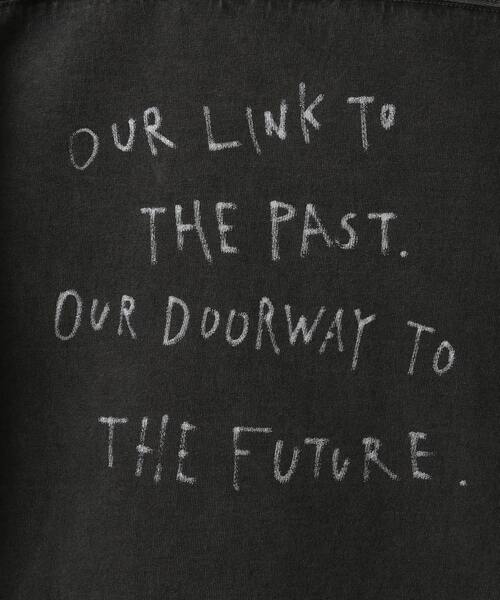 OUR LINK TO
THE PAST.
OUR DOORWAY TO
THE FUTURE.